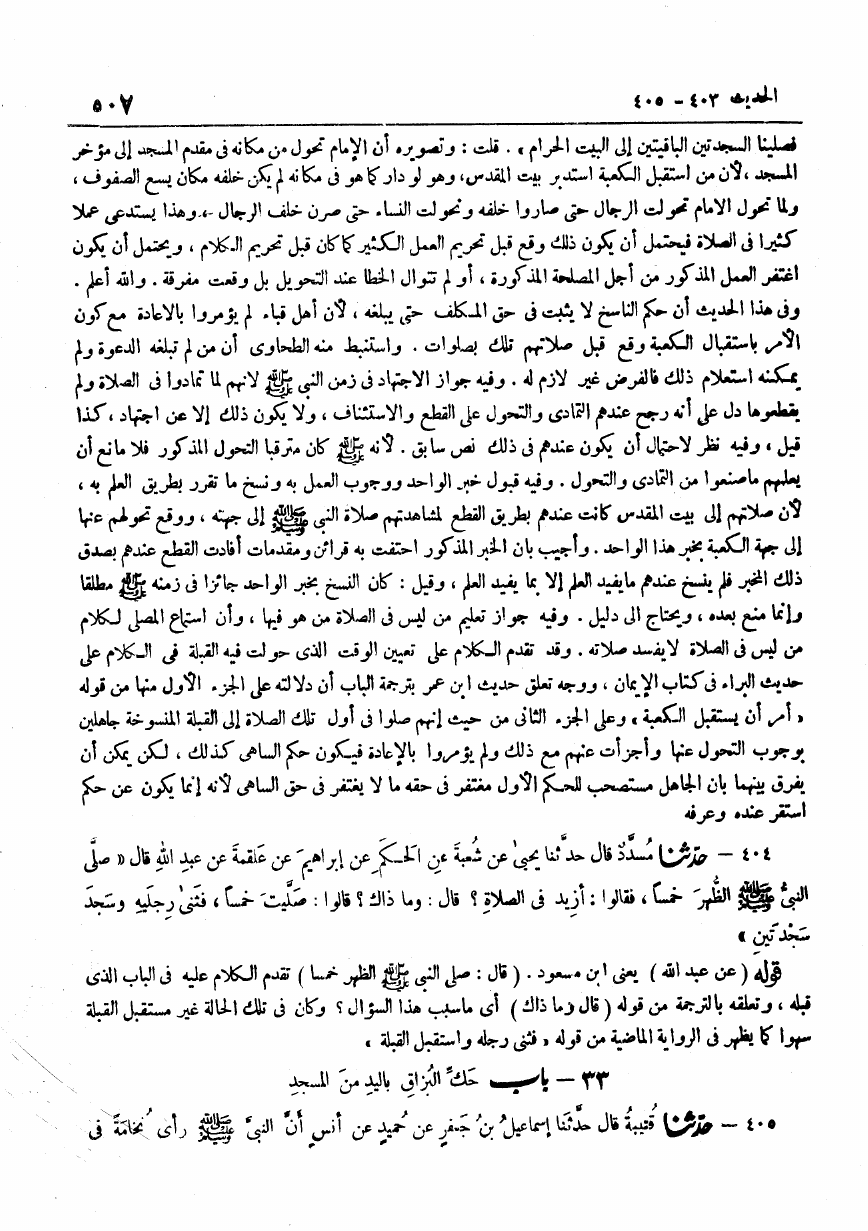 الحديث ٤٠٣ - ٤٠٥
٥٠٧
فصلينا السجدتين الباقيتين إلى البيت الحرام » . قلت : وتصويره أن الإمام تحول من مكانه فى مقدم المسجد إلى مؤخر
المسجد ، لأن من استقبل الكعبة استدبر بيت المقدس، وهو لو دار كما هو فى مكانه لم يكن خلفه مكان يسع الصفوف ،
ولما تحول الامام تحولت الرجال حتى صاروا خلفه وتحولت النساء حتى صرن خلف الرجال ، وهذا يستدعى عملا
كثيرا فى الصلاة فيحتمل أن يكون ذلك وقع قبل تحريم العمل الكثير كما كان قبل تحريم الكلام ، ويحتمل أن يكون
اغتفر العمل المذكور من أجل المصلحة المذكورة ، أو لم تتوال الخطا عند التحويل بل وقعت مفرقة . والله أعلم .
وفى هذا الحديث أن حكم الناسخ لا يثبت فى حق المكلف حتى يبلغه ، لأن أهل قباء لم يؤمروا بالاعادة مع كون
الأمر باستقبال الكعبة وقع قبل صلاتهم تلك بصلوات . واستنبط منه الطحاوى أن من لم تبلغه الدعوة ولم
يمكنه استعلام ذلك فالفرض غير لازم له . وفيه جواز الاجتهاد فى زمن النبى ﷺ لانهم لما تمادوا فى الصلاة ولم
يقطعوها دل على أنه رجح عندهم التمادى والتحول على القطع والاستئناف ، ولا يكون ذلك إلا عن اجتهاد ، كذا
قيل ، وفيه نظر لاحتمال أن يكون عندهم فى ذلك نص سابق . لأنه ﷺ كان مترقبا التحول المذكور فلا مانع أن
يعلمهم ماصنعوا من التمادى والتحول . وفيه قبول خبر الواحد ووجوب العمل به ونسخ ما تقرر بطريق العلم به ،
لأن صلاتهم إلى بيت المقدس كانت عندهم بطريق القطع لمشاهدتهم صلاة النبى ﷺ إلى جهته ، ووقع تحولهم عنها
إلى جهة الكعبة بخبر هذا الواحد . وأجيب بان الخبر المذكور احتفت به قرائن ومقدمات أفادت القطع عندهم بصدق
ذلك المخبر فلم ينسخ عندهم مايفيد العلم إلا بما يفيد العلم ، وقيل : كان النسخ بخبر الواحد جائزا فى زمنه ﷺ مطلقا
وإنما منع بعده ، ويحتاج الى دليل . وفيه جواز تعليم من ليس فى الصلاة من هو فيها ، وأن استماع المصلى لكلام
من ليس فى الصلاة لايفسد صلاته . وقد تقدم الكلام على تعيين الوقت الذى حولت فيه القبلة فى الكلام على
حديث البراء فى كتاب الإيمان ، ووجه تعلق حديث ابن عمر بترجمة الباب أن دلالته على الجزء الأول منها من قوله
« أمر أن يستقبل الكعبة » وعلى الجزء الثانى من حيث إنهم صلوا فى أول تلك الصلاة إلى القبلة المنسوخة جاهلين
بوجوب التحول عنها وأجزأت عنهم مع ذلك ولم يؤمروا بالإعادة فيكون حكم الساهى كذلك ، لكن يمكن أن
يفرق بينهما بان الجاهل مستصحب للحكم الأول مغتفر فى حقه ما لا يغتفر فى حق الساهى لأنه إنما يكون عن حكم
استقر عنده وعرفه
٤٠٤ – حدّثنا مُسدَّدٌ قال حدَّثنا يحيىٰ عن شُعبةَ عنِ الحَكَمِ عن إبراهيمَ عن عَلقمةَ عن عبدِ اللهِ قال « صلَّى
النبىُّ ﷺ الظُّهرَ خمساً ، فقالوا : أزِيدَ فى الصلاةِ ؟ قال : وما ذاك ؟ قالوا : صَلَّيتَ خمساً ، فثَنىٰ رِجلَيهِ وسَجدَ
سَجْدتَينِ »
قوله ( عن عبد الله ) يعنى ابن مسعود . ( قال : صلى النبى ﷺ الظهر خمسا ) تقدم الكلام عليه فى الباب الذى
قبله ، وتعلقه بالترجمة من قوله ( قال وما ذاك ) أى ماسبب هذا السؤال ؟ وكان فى تلك الحالة غير مستقبل القبلة
سهوا كما يظهر فى الرواية الماضية من قوله « فثنى رجله واستقبل القبلة »
٣٣ – باب حَكِّ البُزاقِ باليدِ منَ المسجدِ
٤٠٥ – حدّثنا قُتيبةُ قال حدَّثَنا إسماعيلُ بنُ جَعفرٍ عن حُميدٍ عن أنسٍ أنَّ النبىَّ ﷺ رأى نُخامَةً فى